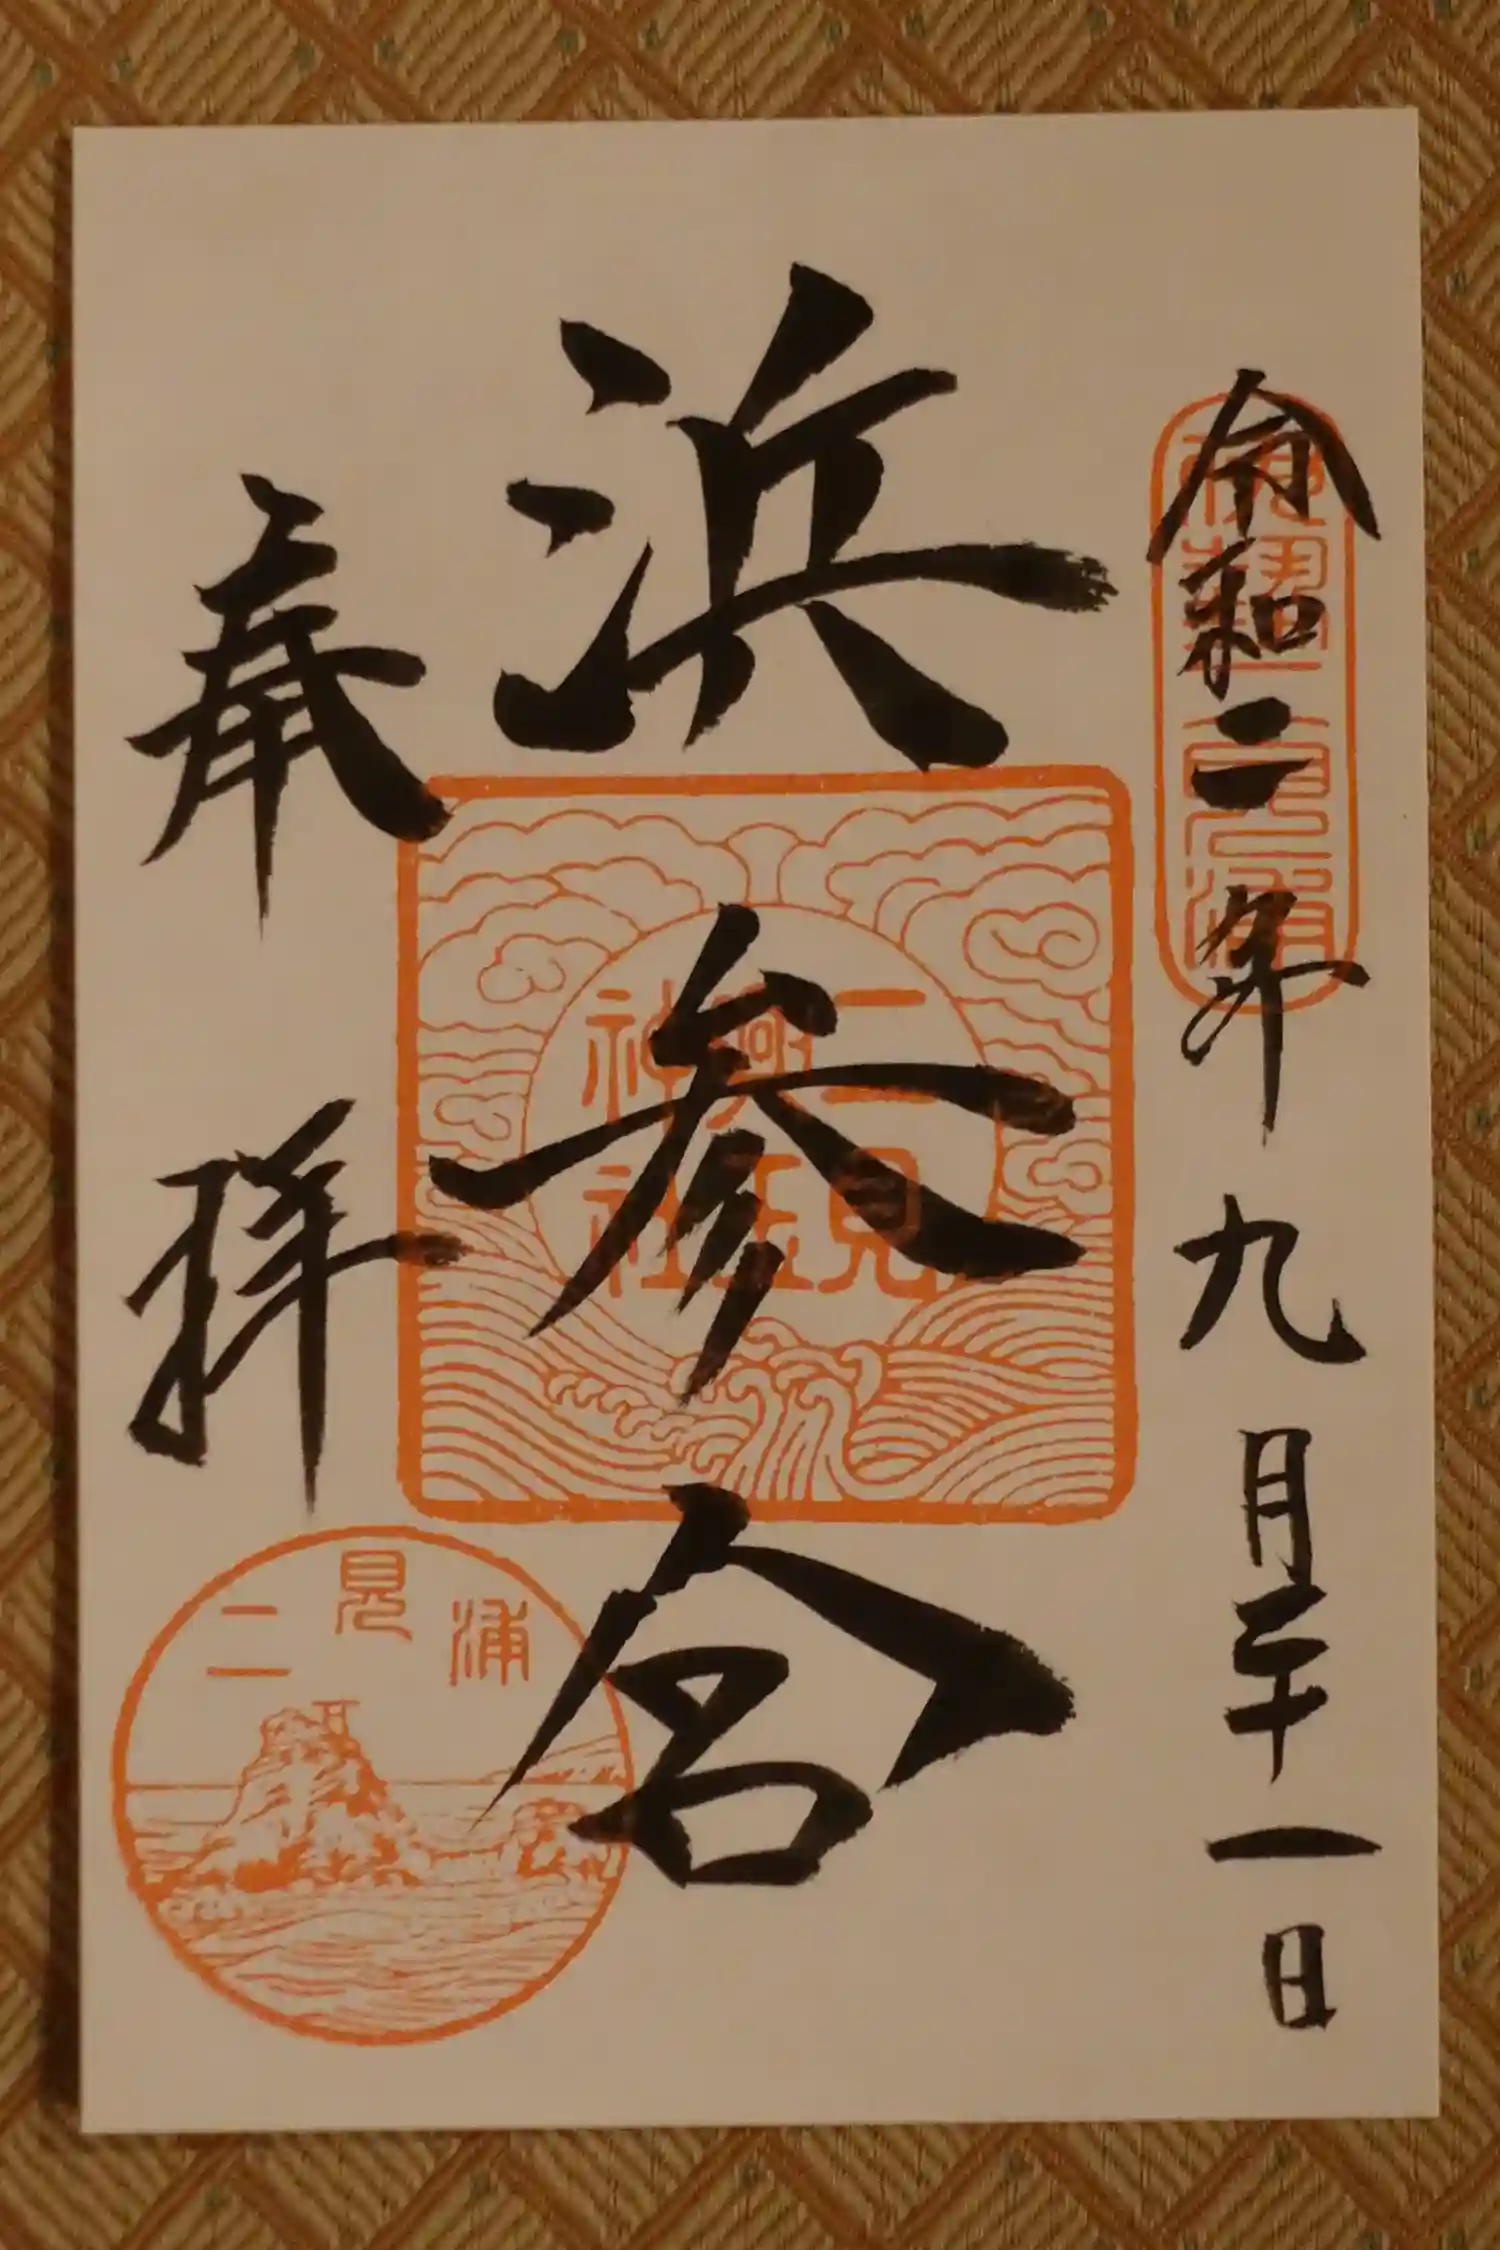 令和二年九月二十一日
浜参宮
奉拝
二見
興玉
神社
二見浦
二見浦